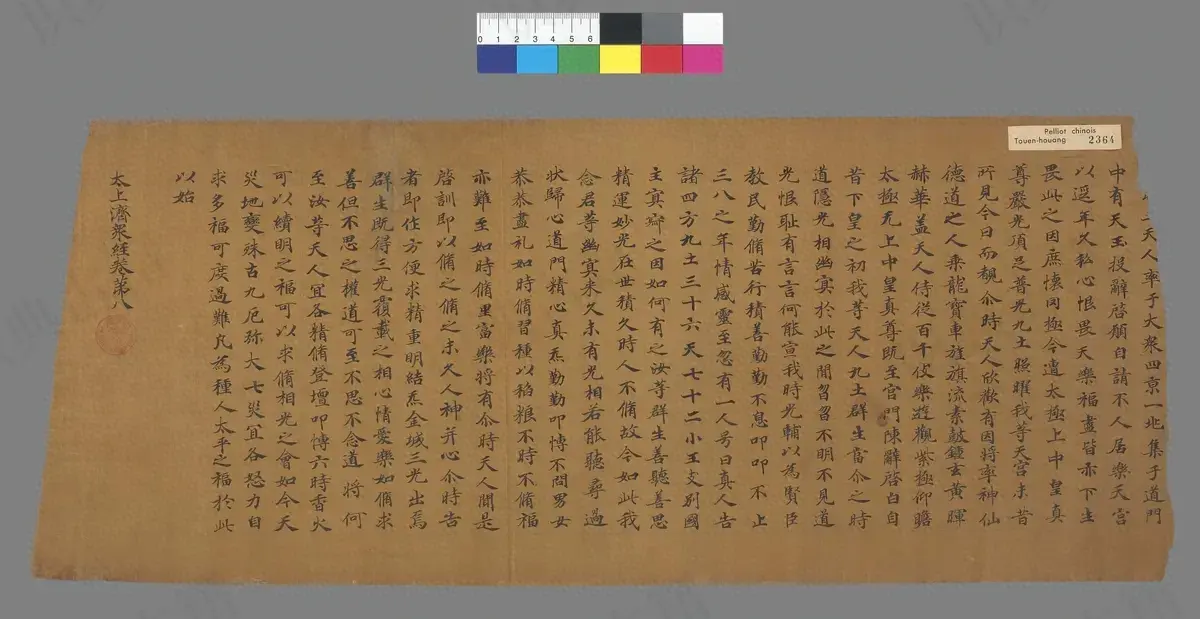 0 1 2 3 4 5 6
Pelliot chinois
Touen-houang 2364
天人率子大衆四京一兆集子道門
中有天王投辭啓願自請不人居樂天宮
以逕年久移心恨畏天樂福盡皆亦下生
畏此之因庶懐罔極今遣太極上中皇真
尊嚴光項足普光九土照曜我等天宮未昔
所見今日而覩尒時天人欣歡有因將率神仙
德道之人乗龍寶車旌旗流素鼓鍾玄黃暉
赫華盖天人侍従百千伎樂遊觀紫極仰瞻
太極无上中皇真尊既至宮門陳辭啓白自
昔下皇之初我等天人九土群生富尒之時
道隱光相幽㝠於此之間曶曶不明不見道
光恨耻有言言何能宣我時光輔以為賢臣
教民勤脩苦行積善勤勤不息叩叩不止
三八之年情感靈至忽有一人号曰真人告
諸四方九土三十六天七十二小王支別國
主㝠㝠之因如何有之汝等群生善聽善思
精運妙光在世積久時人不脩故令如此我
念君等幽㝠来久未有光相若能聽尋過
狀歸心道門精心真炁勤勤叩愽不問男女
恭恭盡礼如時脩習種以稻粮不時不脩福
亦難至如時脩里富樂將有尒時天人聞是
啓訓即以脩之脩之未久人神并心尒時告
者即住方便求精重明結炁金城三光出焉
群生既得三光覆載之相心情愛樂如脩求
善但不思之權道可至不思不念道將何
至汝等天人冝各精脩登壇叩愽六時香火
可以續明之福可以求脩相光之會如今天
災地變殊古九厄弥大七災冝各怒力自
求多福可度過難九為種人太平之福於此
以始
太上濟衆經卷第八